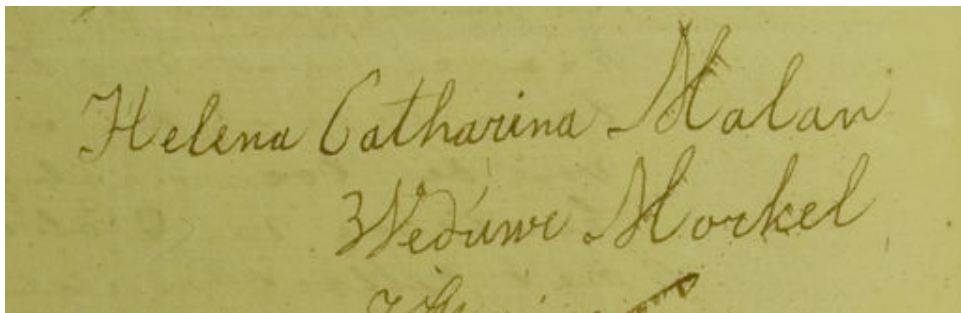 Helena Catharina Malan
Weduwe Morkel